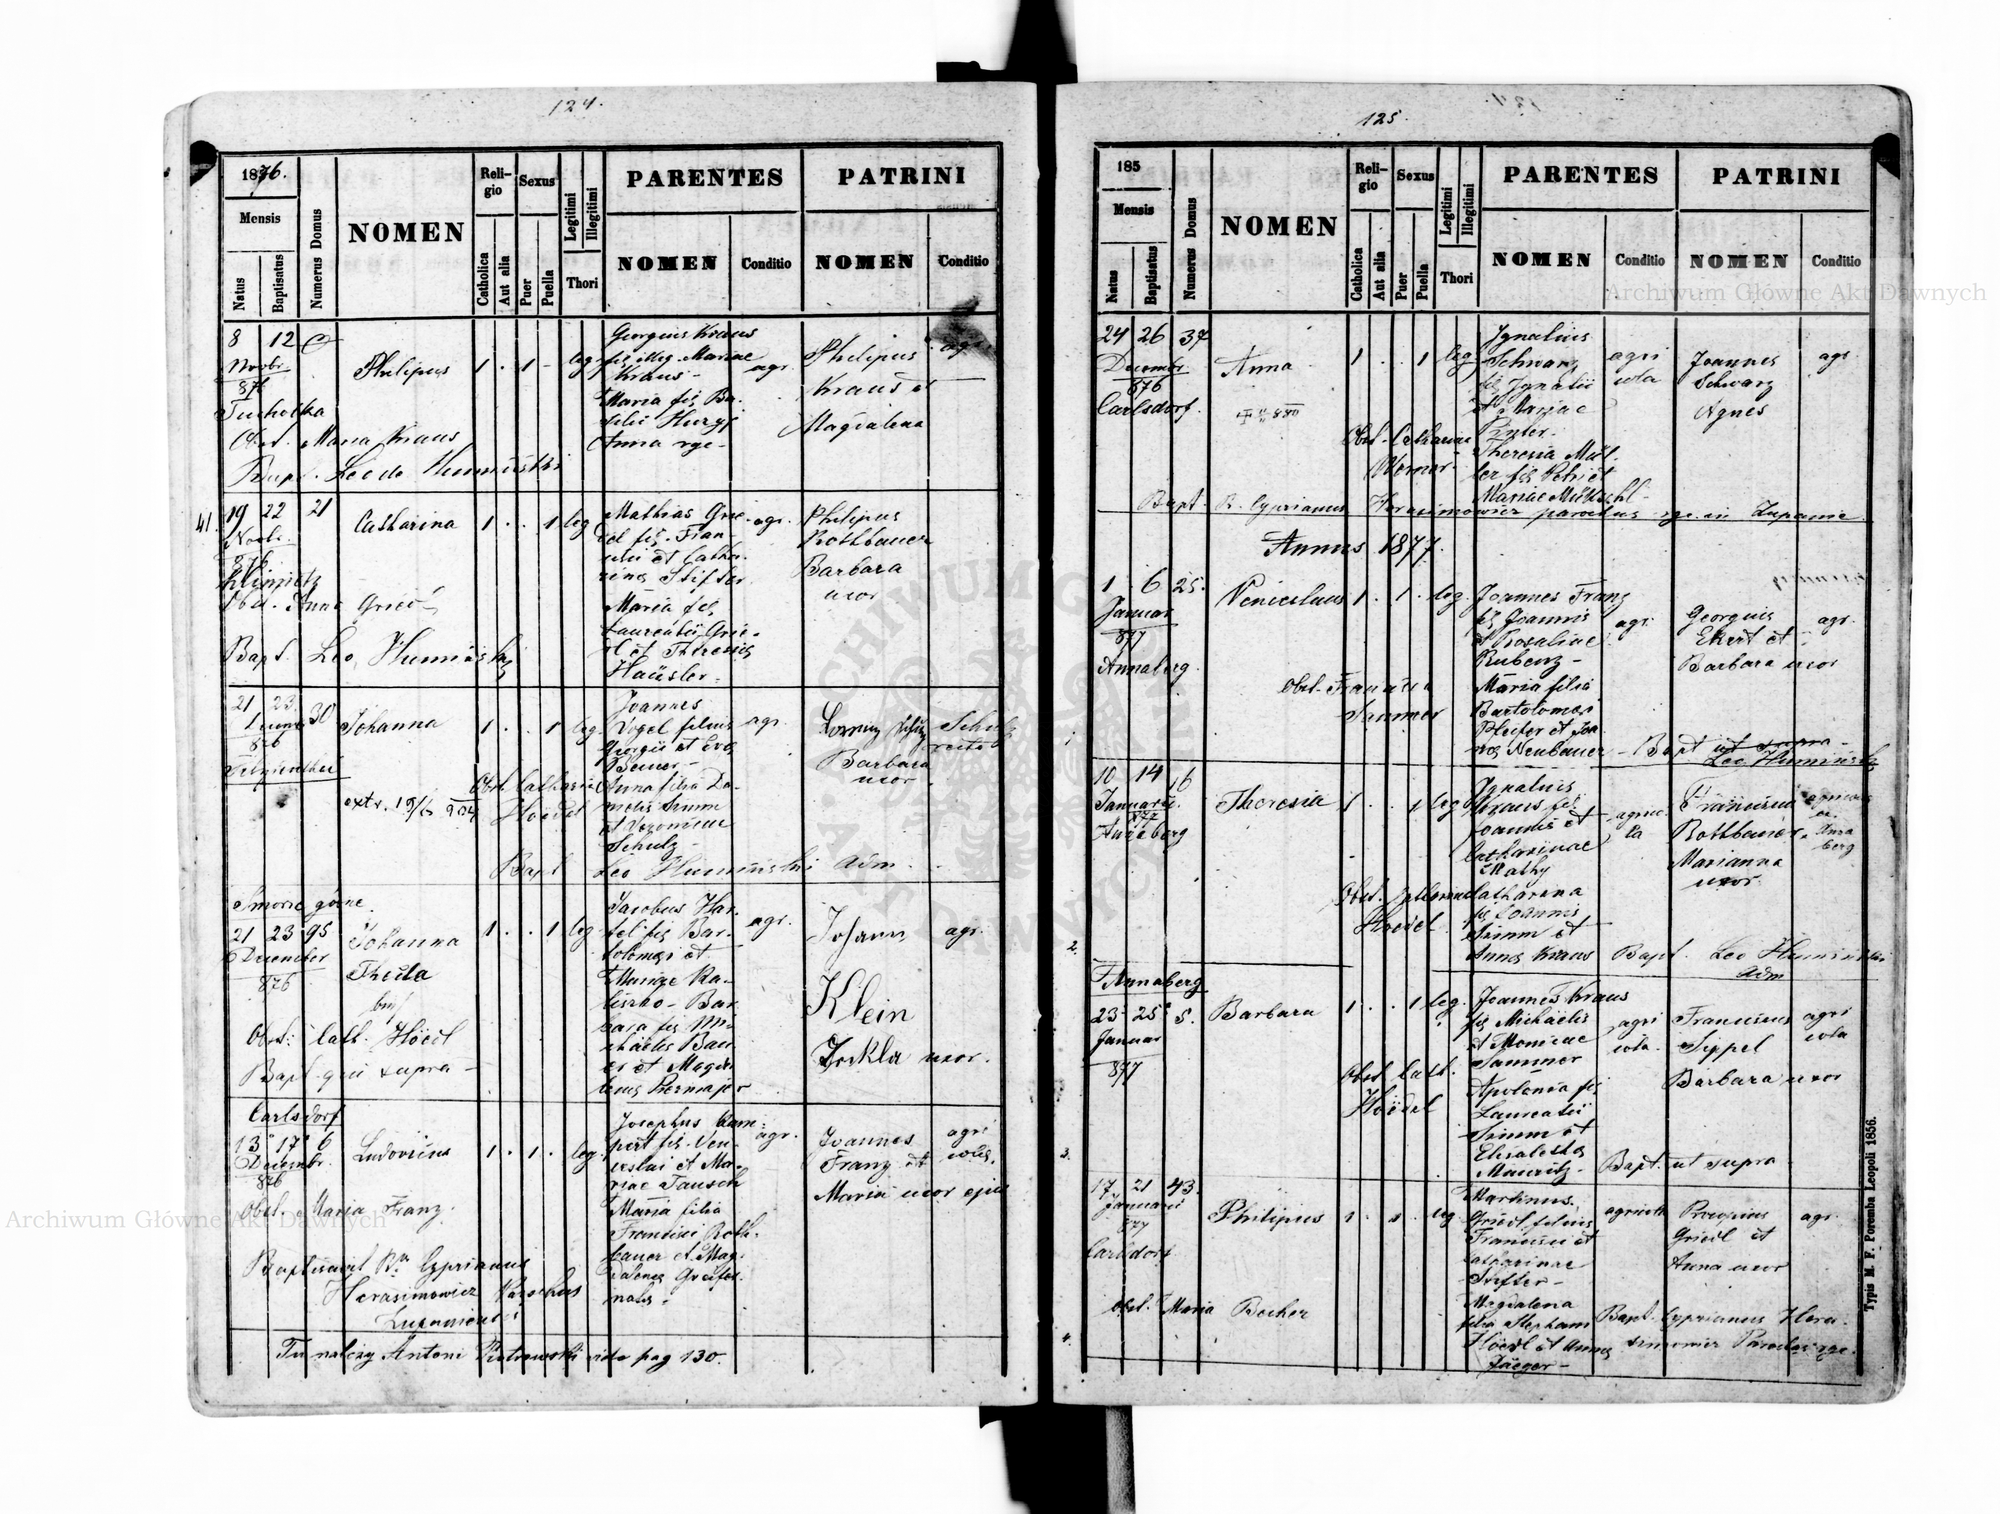 124.
1876.
Mensis
Natus
Baptisatus
Numerus Domus
NOMEN
Religio
Catholica
Aut alia
Sexus
Puer
Puella
Legitimi
Illegitimi
Thori
PARENTES
NOMEN
Conditio
PATRINI
NOMEN
Conditio
8 12
Novbr.
876
Tucholka
Philipus
1 . 1 - leg
Georgius Kraus
fil. illeg. Mariae
Kraus -
Maria fil. Ba-
silii
Anna rge -
agr.
Philipus
Kraus et
Magdalena
agr.
Obst. Maria Kraus
Bapt. Leo de Humiński
41.
19 22 21
Novbr.
876
Catharina
1 . . 1 leg
Mathias Grie-
del fil. Fran-
cisci et Catha-
rina Stifter
Maria fil.
Laurentii Grie-
dl et Theresia
Haüsler -
agr.
Philipus
Rothbauer
Barbara
uxor
Obst. Anna Griedl
Bapt. Leo Humiński
21 23 30
Decemb
876
Johanna
1 . . 1 leg
Joannes
Vogel filius
Georgii et Eva
Beuer -
Anna filia
Simm
et Veronicae
Schulz -
agr.
Lorenz
Barbara
uxor
Obst. Catharine
Hoedl
extr. 19/6 904
Bapt Leo Humiński adm.
Smorze górne
21 23 95
December
876
Johanna
Thecla
bin/
1 . . 1 leg
Jacobus Har-
tel fil. Bar-
tolomei et
Mariae Ka-
liszko - Bar-
bara fil. Mi-
chaelis Bau-
er et Magda-
lena Hermajer
agr.
Johann
Klein
Thekla uxor.
agr.
Obst: Cath. Höedl
Bapt. qui supra -
Carlsdorf
13 17 6
Decembr.
876
Ludovicus
1 . 1 . leg.
Josephus Lam-
pert fil. Ven-
ceslai et Ma-
riae Tausch
Maria filia
Francisci Roth-
bauer et Mag-
dalena Greifen-
agr.
Joannes
Franz et
Maria uxor ejus
agri
colae.
Obst. Maria Franz.
Baptisavit Rr. Cyprianus
Herasimowicz Parochus
Tu należy Antoni Piotrowski vide pag 130.
125.
185
Mensis
Natus
Baptisatus
Numerus Domus
NOMEN
Religio
Catholica
Aut alia
Sexus
Puer
Puella
Legitimi
Illegitimi
Thori
PARENTES
NOMEN
Conditio
PATRINI
NOMEN
Conditio
24 26 37
Decembr.
876
Carlsdorf.
Anna
1 . . 1 leg
Ignatius
Schwarz
fil. Ignatii
et Mariae
Pinter -
Theresia Mül-
ler fil. Petri et
Mariae
agri
cola
Joannes
Schwarz
Agnes
agr.
Obst. Catharine
Werner
Bapt. R. Cyprianus Herasimowicz parochus rge. in Żupanie
Annus 1877.
1 6 25.
Januar
877
Annaberg.
Venceslaus
1 . 1 . leg.
Joannes Franz
fil. Joannis
et Rosaliae
Rubenz -
Maria filia
Bartolomaei
Pleifer et Joa-
na Neubauer -
agr.
Georgius
Ekert et
Barbara uxor
agr.
Obst. Francisca
Sammer
Bapt ut supra -
Leo Humiński
10 14 16
Januarii
877
Annaberg
Theresia
1 . . 1 leg
Ignatius
Kraus fil.
Joannis et
Catharinae
Mathy
Catharina
fil. Joannis
Simm et
Anna Kraus
agrico-
la
Franciscus
Rothbauer
Marianna
uxor
Anna
berg
Obst. Catharina
Hoedel
2.
Bapt. Leo Humiński
adm
Annaberg
23 25 5.
Januar
877
Barbara
1 . . 1 leg.
Joannes Kraus
fil. Michaelis
et Monicae
Sammer
Apolonia fil
Laurentii
Simm et
Elisabetha
Mauritz -
agri
cola.
Franciscus
Sippel
Barbara uxor
agri
cola
Obst. Cath.
Höedel
3.
Bapt. ut supra
17 21 43.
Januarii
877
Carlsdorf
Philipus
1 . 1 . leg
Martinus
Griedl filius
Francisci et
Catharinae
Stifter -
Magdalena
filia Stephani
Höedl et Anna
Jäeger -
agricola
Procopius
Griedl et
Anna uxor
agr.
Obst. Maria Becher
4.
Bapt. Cyprianus Hera-
simowicz Parochus rge.
Typis M. F. Poremba Leopoli 1856.
Archiwum Główne Akt Dawnych
Archiwum Główne Akt Dawnych